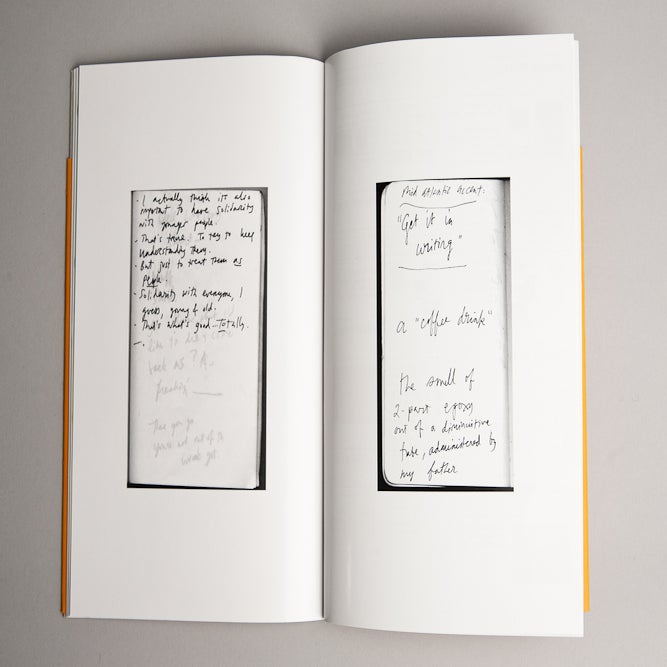 - I actually think it's also
important to have solidarity
with younger people.
- That's true. To try to keep
understanding them.
- But just to treat them as
People.
- Solidarity with everyone, I
guess, young & old.
- That's what's good. Totally.
-.
back as ? A
There you go
Mid Atlantic Accent.
"Get it in
writing"
a "coffee drink"
the smell of
2-part epoxy
out of a diminutive
tube, administered by
my father